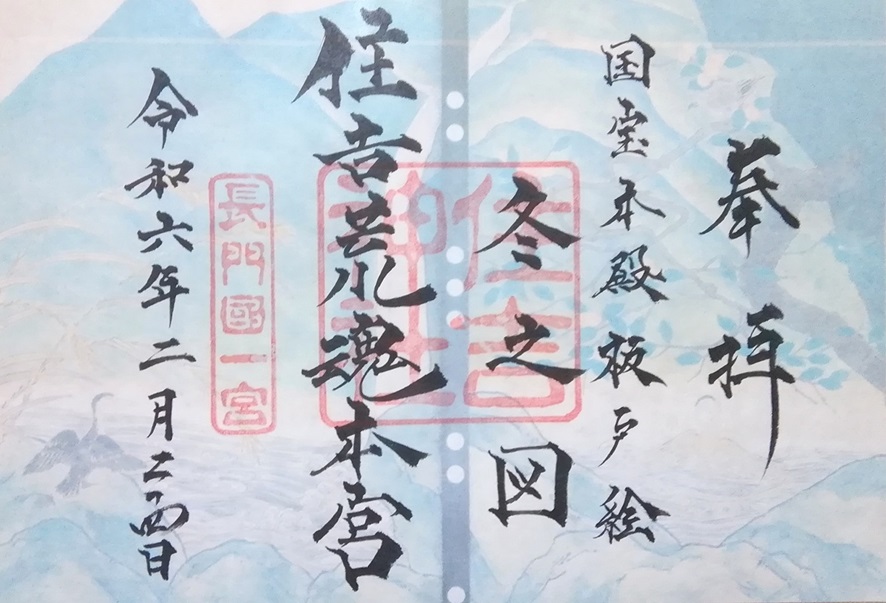 奉拝
国宝本殿板戸絵
冬之図
住吉神社
住吉荒魂本宮
長門國一宮
令和六年二月二四日